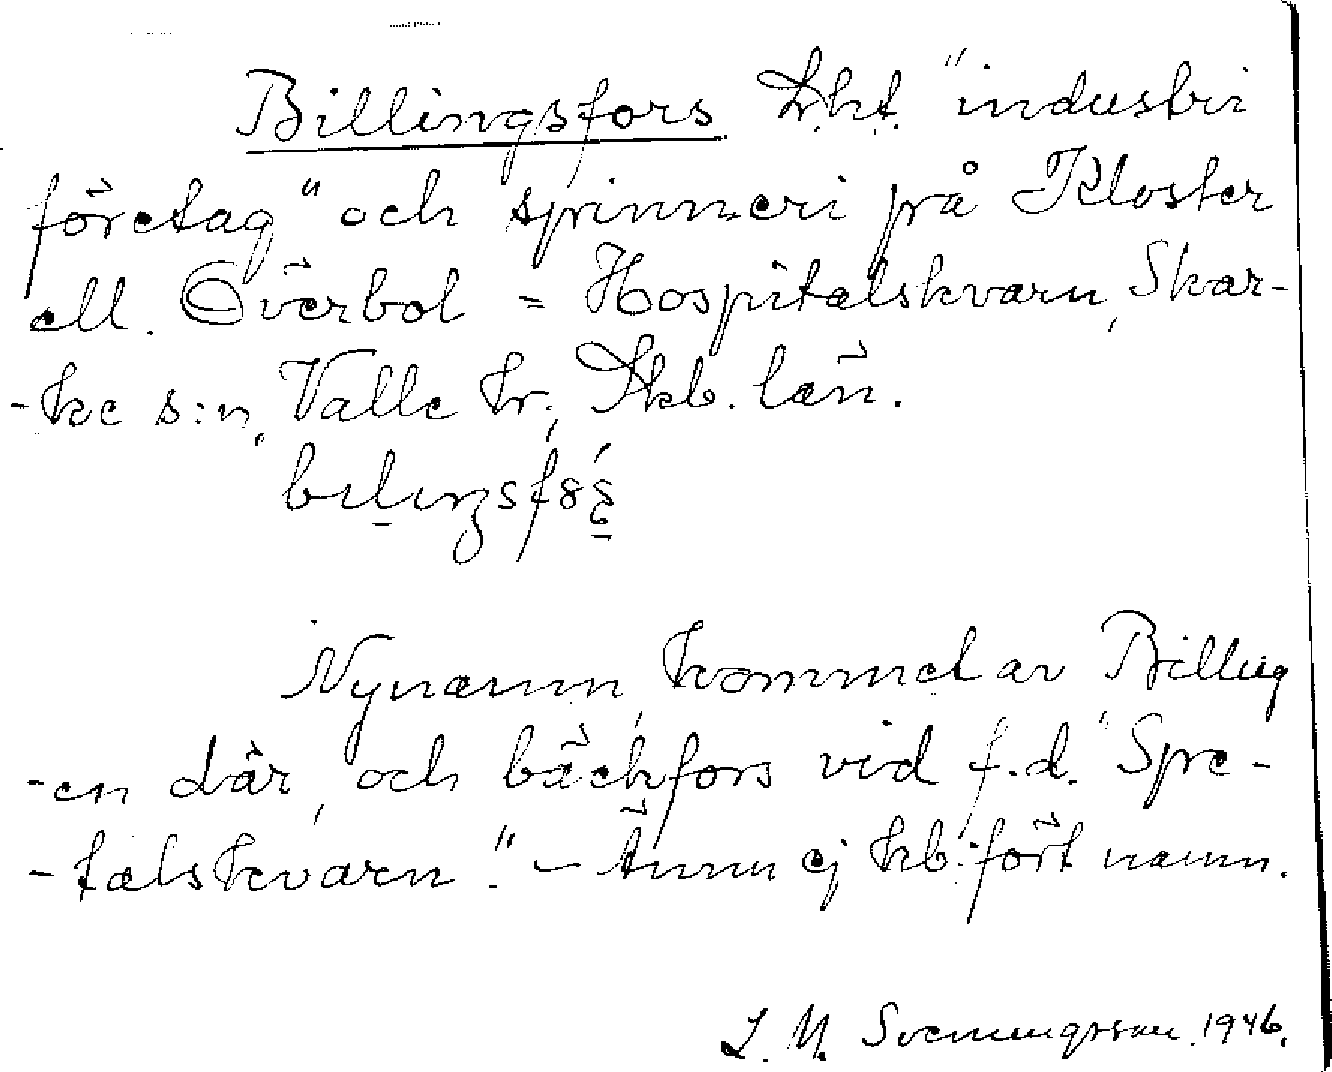 Billingsfors Lht. "industri
företag" och spinneri på Kloster
ell. Överbol = Hospitalskvarn, Skar-
-ke s:n, Valle hr., Skb. län.
Nynamn, kommet av Billing
-en där, och bäckfors vid f.d. "Spe-
-talskvarn." – Ännu ej kb.fört namn.
L. M. Svenungsson. 1946.